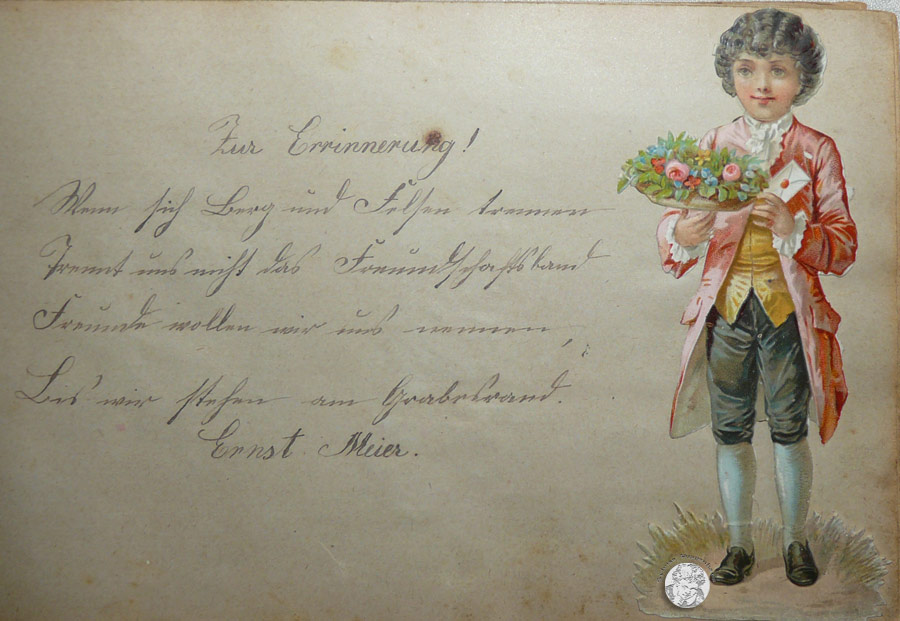 Zur Errinnerung!
Wenn sich Berg und Felsen trennen
Trennt uns nicht das Freundschaftsband
Freunde wollen wir uns nennen,
Bis wir stehen am Grabesrand.
Ernst Meier.